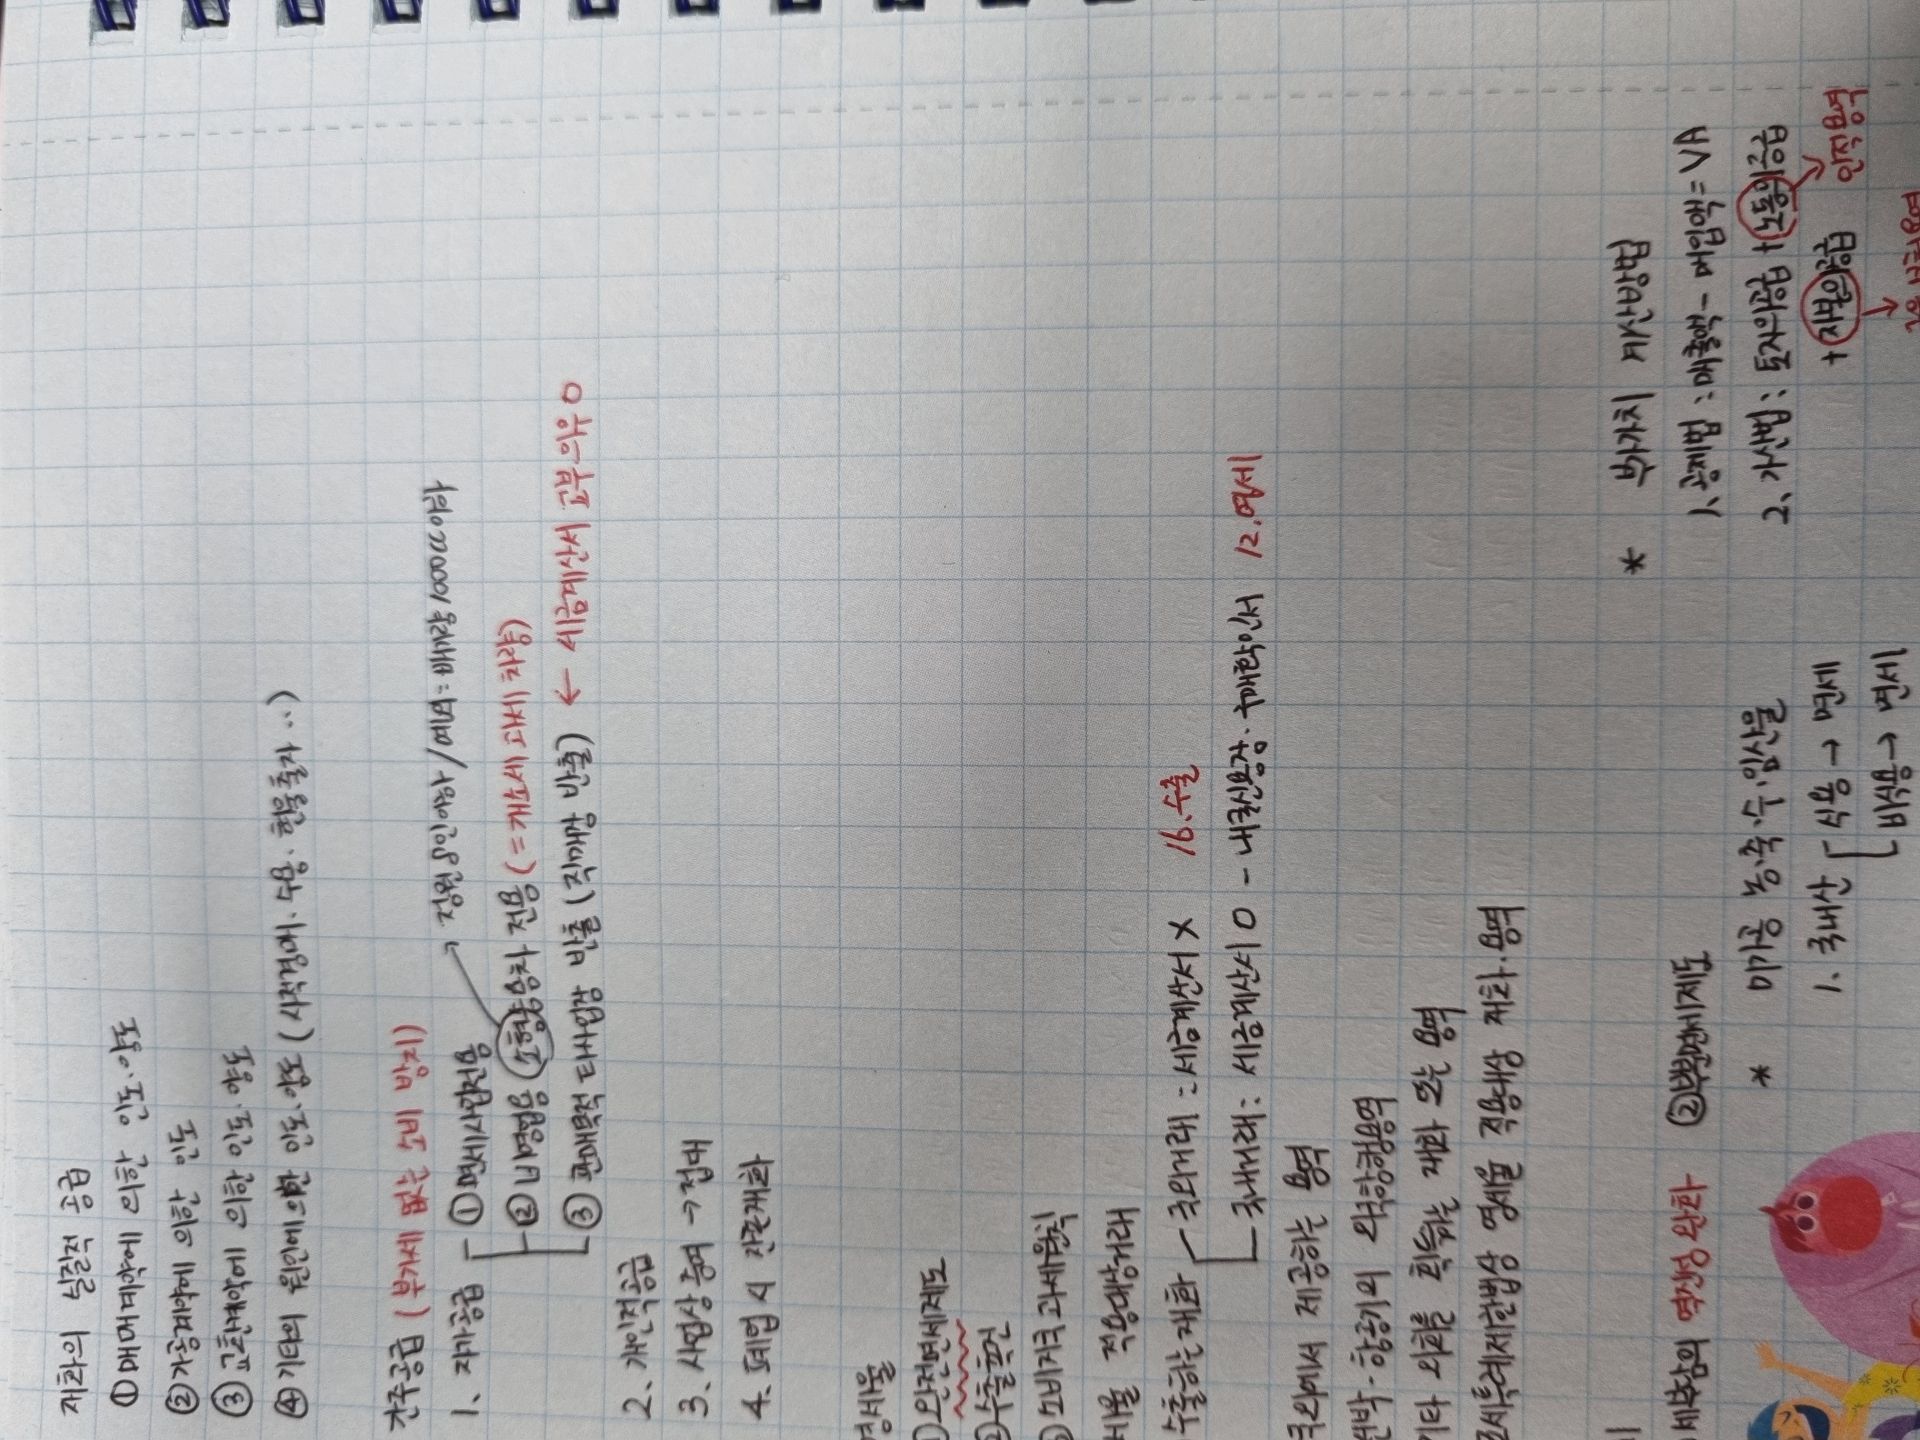 재화의 실질적 공급
① 매매계약에 의한 인도·양도
② 가공계약에 의한 인도
③ 교환계약에 의한 인도·양도
④ 기타의 원인에 의한 인도·양도 (사적경매·수용·현물출자..)
간주공급 (부가세 없는 소비 방지)
정원 8인이하 / 미만: 배기량 1000cc이하
1. 자가공급 ① 면세사업전용
② 비영업용 소형승용차 전용 (=기재부 고시 자가용)
③ 판매목적 타사업장 반출 (직매장 반출) ← 세금계산서 교부의무 O
2. 개인적공급
3. 사업상 증여 → 접대
4. 폐업시 잔존재화
영세율
완전면세제도
수출촉진
소비지국과세원칙
세율 적용대상거래
수출하는 재화 국외거래 : 세금계산서 X 16.수출
국내거래 : 세금계산서 O - 내국신용장·구매확인서 12.영세
국외에서 제공하는 용역
선박·항공기의 외국항행용역
기타 외화를 획득하는 재화 또는 용역
조세특례제한법상 영세율 적용대상 재화·용역
세부담의 역진성 완화 ② 부분면세제도
* 미가공 농·축·수·임산물
1. 국내산 식용 → 면세
비식용 → 면세
* 부가가치 계산방법
1. 공제법 : 매출액 - 매입액 = VA
2. 가산법 : 토지공급 + 노동공급
+ 자본공급
인적용역
금융